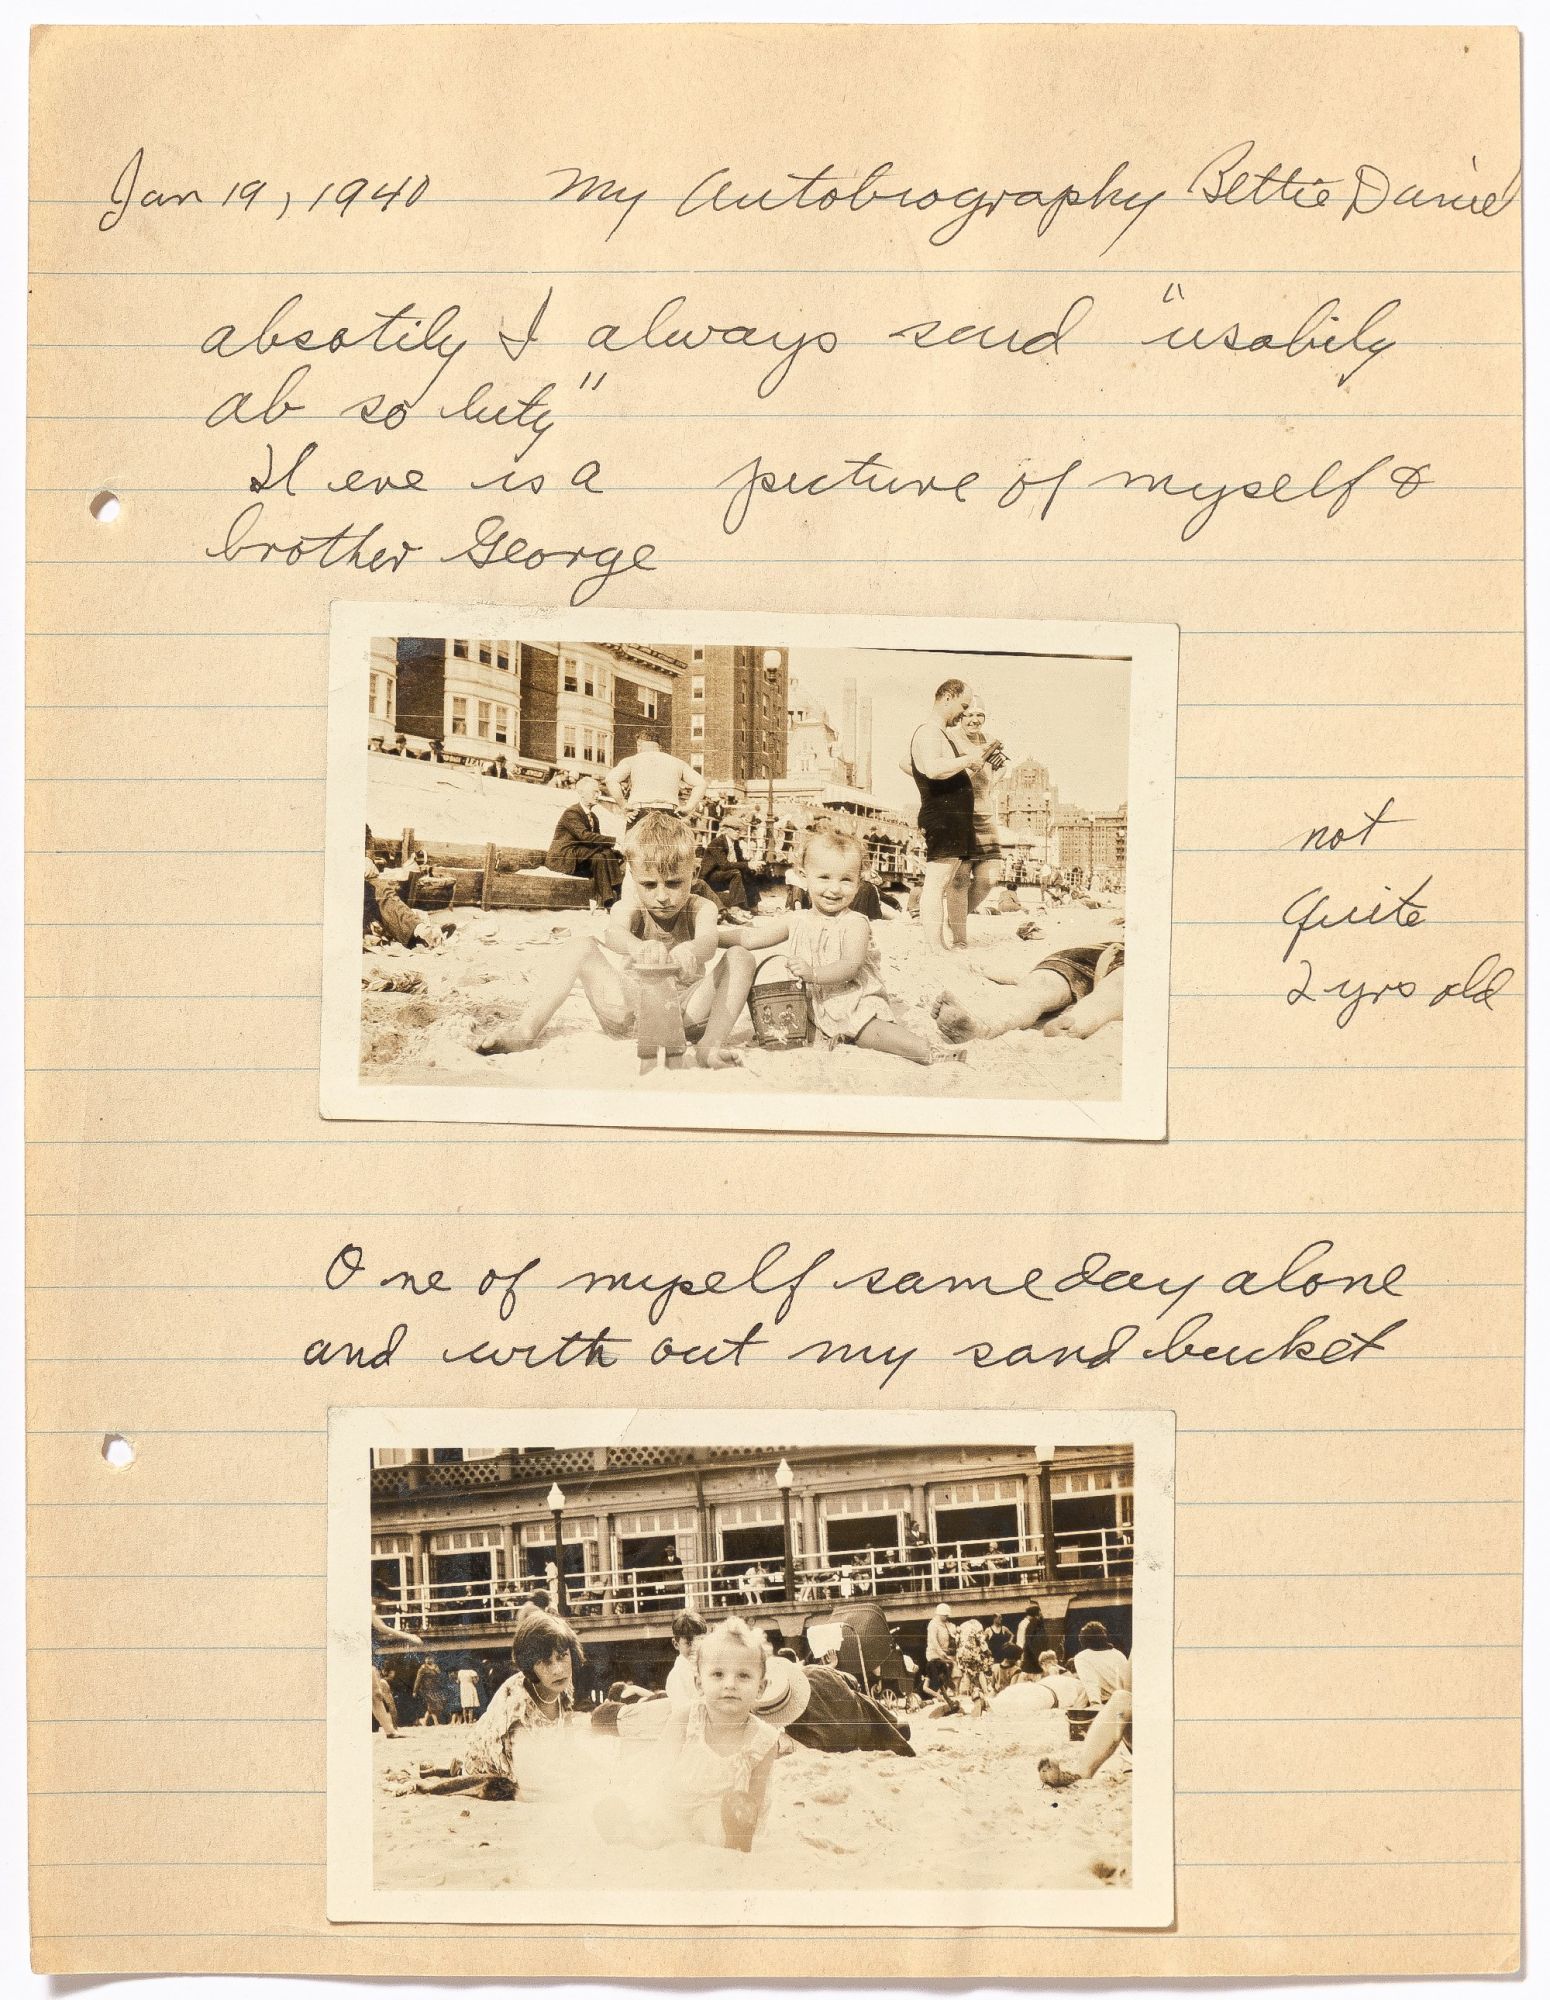 Jan 19, 1940 My Autobiography Bettie Daniel
absotily I always said "usobily
ab so luty"
Here is a picture of myself &
brother George
not
quite
2 yrs old
One of myself same day alone
and with out my sand bucket